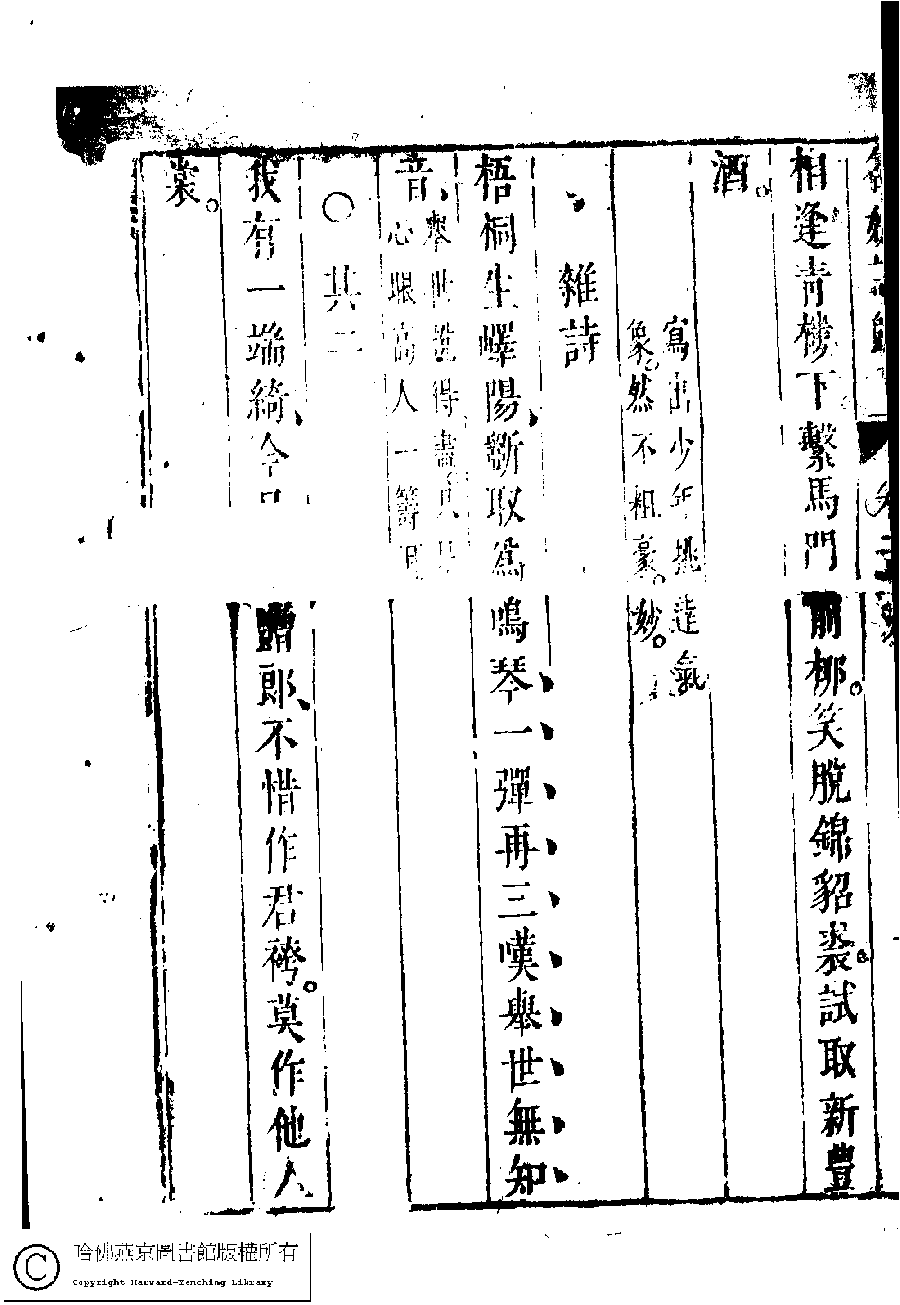 相逢青樓下繫馬門前柳笑脫錦貂裘試取新豐
酒
寫出少年挑達氣
象然不粗豪妙
雜詩
梧桐生嶧陽斲取爲鳴琴一彈再三嘆舉世無知
音
舉世說得盡
心眼高人一籌
其二
我有一端綺今日贈郎不惜作君袴莫作他人
裳
哈佛燕京圖書館版權所有
Copyright Harvard-Yenching Library